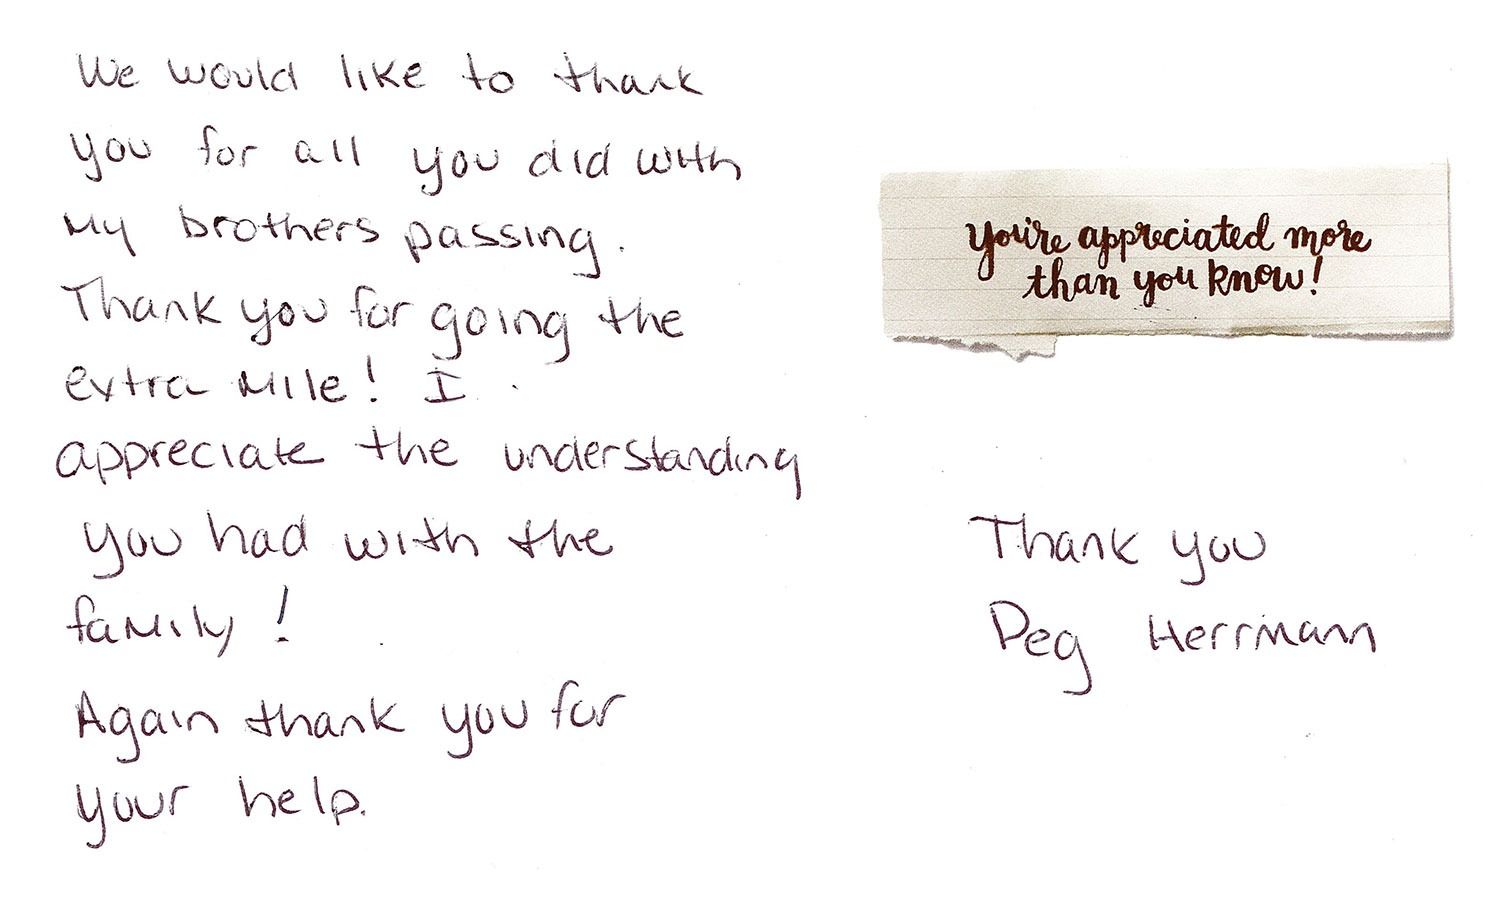 We would like to thank
you for all you did with
My brothers passing.
Thank you for going the
extra mile! I
appreciate the understanding
you had with the
family!
Again thank you for
your help.
You're appreciated more
than you know!
Thank you
Peg Herrmann